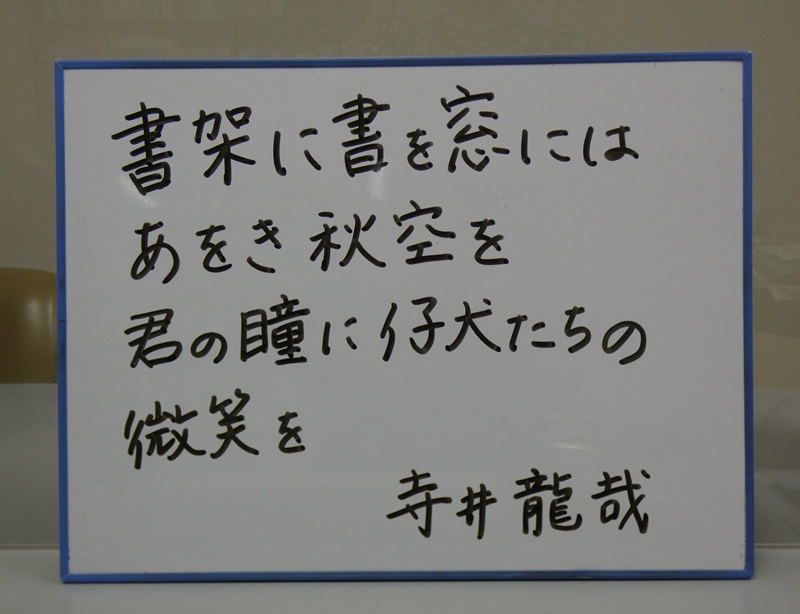 書架に書を窓には
あをき秋空を
君の瞳に仔犬たちの
微笑を
寺井龍哉